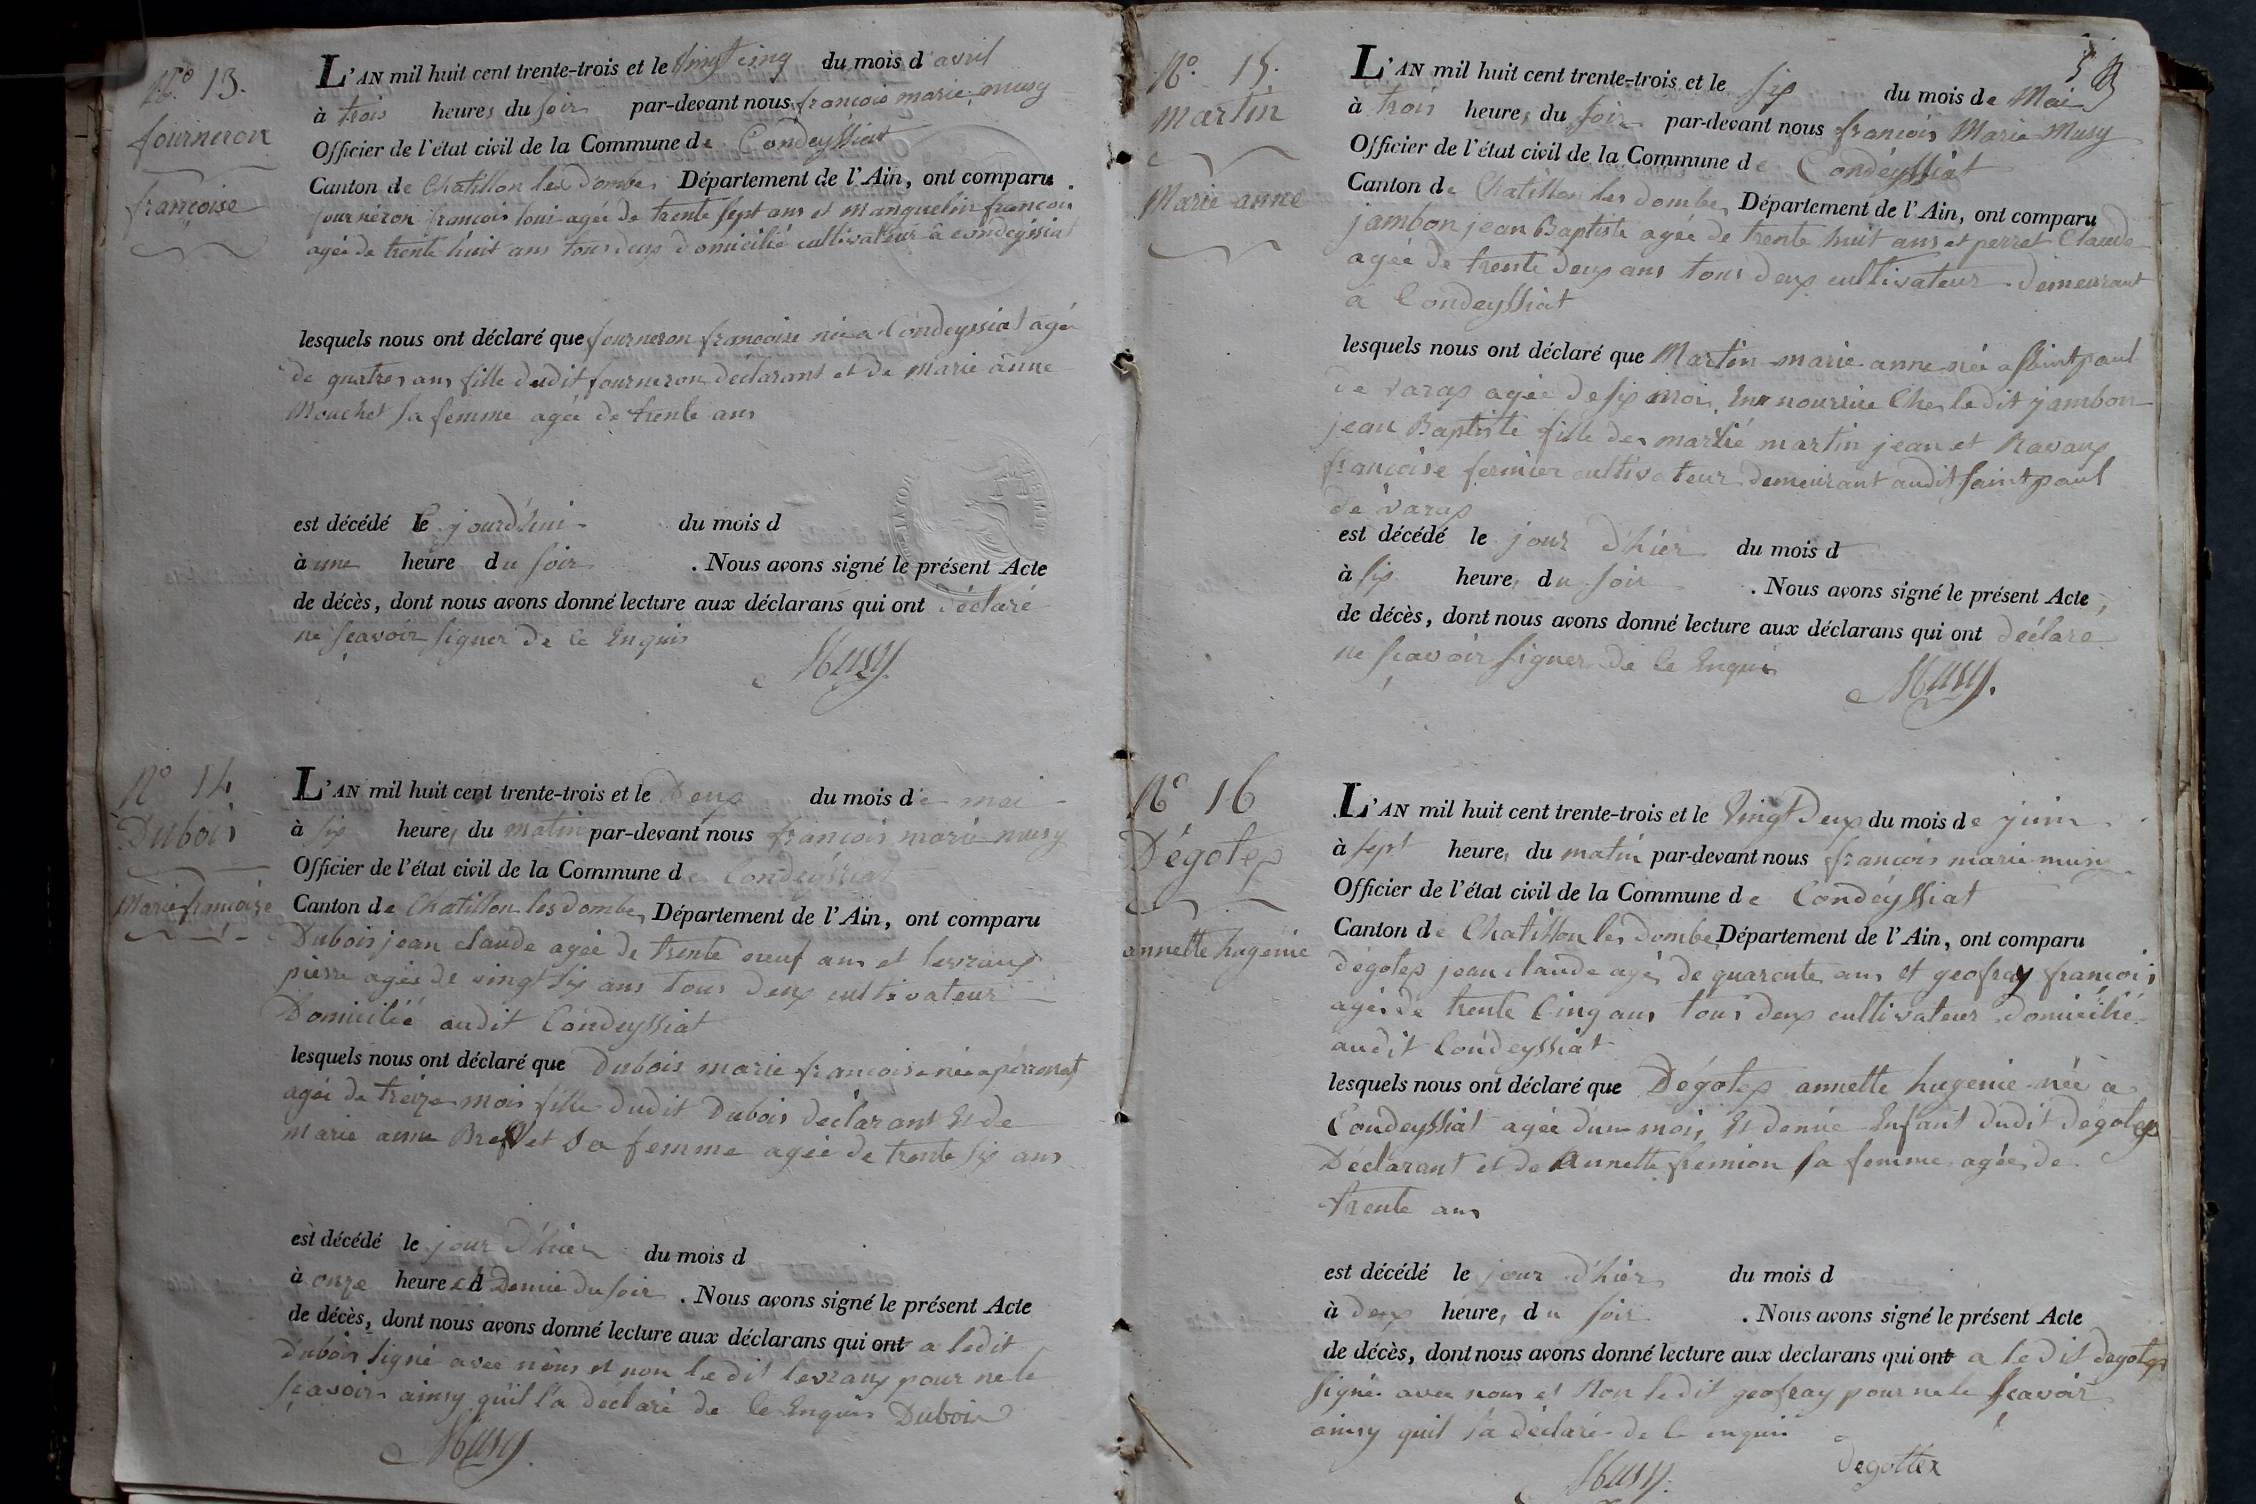 N.o 13.
fourneron
françoise
L'AN mil huit cent trente-trois et le vingt cinq du mois d'avril
à trois heures du soir par-devant nous françois marie musy
Officier de l'état civil de la Commune de Condeyssiat
Canton de Chatillon les dombes Département de l'Ain, ont comparu
fourneron françois loui agée de trente sept ans et manguelin françois
agée de trente huit ans tous deux domicilié cultivateur à condeyssiat
lesquels nous ont déclaré que fourneron françoise née a Condeyssiat agée
de quatres ans fille dudit fourneron déclarant et de marie anne
Mouchet sa femme agée de trente ans
est décédé le jourd'hui du mois d
à une heure du soir . Nous avons signé le présent Acte
de décès, dont nous avons donné lecture aux déclarans qui ont déclaré
ne sçavoir signer de ce Enquis
Musy.
N.o 14
Dubois
Marie françoise
L'AN mil huit cent trente-trois et le Deux du mois de mai
à six heures du matin par-devant nous françois marie musy
Officier de l'état civil de la Commune de Condeyssiat
Canton de Chatillon les dombes Département de l'Ain, ont comparu
Dubois jean claude agée de trente neuf ans et levraux
pierre agée de vingt six ans tous deux cultivateur
Domicilié audit Condeyssiat
lesquels nous ont déclaré que Dubois marie françoise née a perronat
agée de treize mois fille dudit Dubois déclarant Et de
marie anne Brevet sa femme agée de trente six ans
est décédé le jour d'hier du mois d
à onze heure et Demie du soir . Nous avons signé le présent Acte
de décès, dont nous avons donné lecture aux déclarans qui ont a ledit
dubois signé avec nous et non le dit levraux pour ne le
sçavoir ainsy qu'il l'a declaré de Ce Enquis Dubois
Musy.
N.o 15.
Martin
Marie anne
5
L'AN mil huit cent trente-trois et le six du mois de Mai
à trois heures du soir par-devant nous françois Marie Musy
Officier de l'état civil de la Commune de Condeyssiat
Canton de Chatillon les dombes Département de l'Ain, ont comparu
jambon jean Baptiste agée de trente huit ans et perret Claude
agée de trente deux ans tous deux cultivateur demeurant
a Condeyssiat
lesquels nous ont déclaré que Martin marie anne née a Saint paul
de varax agée de six mois En nourrice Ches ledit jambon
jean Baptiste fille des marié martin jean et Ravaux
françoise fermier cultivateur demeurant audit saint paul
de varax
est décédé le jour d'hier du mois d
à six heures du soir . Nous avons signé le présent Acte
de décès, dont nous avons donné lecture aux déclarans qui ont déclaré
ne sçavoir signer de Ce Enquis
Musy.
N.o 16
Dégotex
annette hugenie
L'AN mil huit cent trente-trois et le vingt Deux du mois de juin
à sept heures du matin par-devant nous françois marie musy
Officier de l'état civil de la Commune de Condeyssiat
Canton de Chatillon les dombes Département de l'Ain, ont comparu
dégotex jean claude agé de quarente ans et geofray françois
agés de trente Cinq ans tous deux cultivateur domicilié
audit Condeyssiat
lesquels nous ont déclaré que Dégotex annette hugenie née a
Condeyssiat agée dun mois Et demie Enfant dudit dégotex
Déclarant et de Annette fremion sa femme agée de
trente ans
est décédé le jour d'hier du mois d
à deux heures du soir . Nous avons signé le présent Acte
de décès, dont nous avons donné lecture aux declarans qui ont a le dit degotex
signé avec nous et Non ledit geofray pour ne le sçavoir
ainsy quil la déclaré de Ce enquis
degottex
Musy.